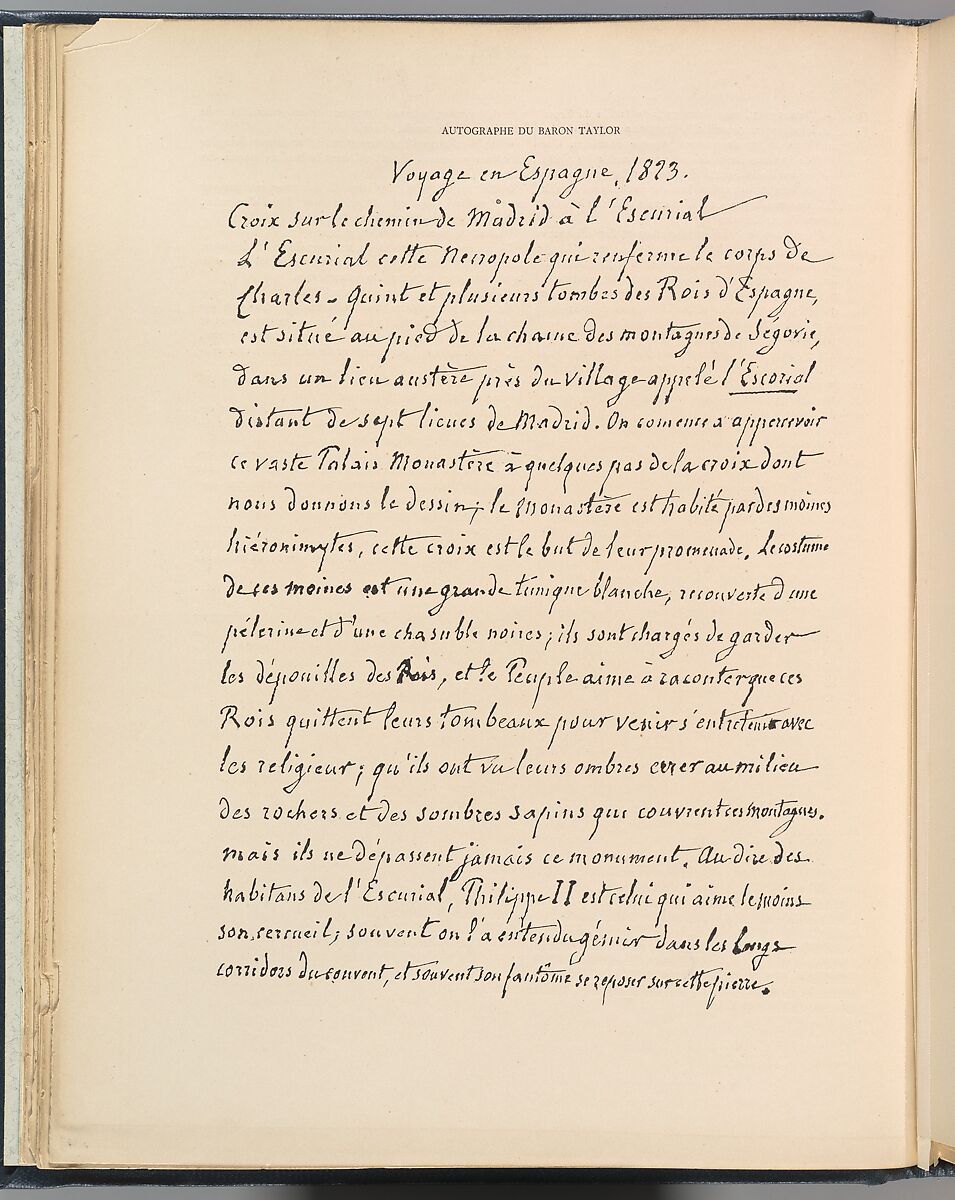 AUTOGRAPHE DU BARON TAYLOR
Voyage en Espagne, 1823.
Croix sur le chemin de Madrid à l'Escurial
L'Escurial cette Necropole qui renferme le corps de
Charles-Quint et plusieurs tombes des Rois d'Espagne,
est situé au pied de la chaine des montagnes de Ségovie,
dans un lieu austère près du village appelé l'Escorial
distant de sept lieues de Madrid. On comence a appercevoir
ce vaste Palais Monastère à quelques pas de la croix dont
nous donnons le dessin; le monastère est habité par des moines
hiéronimytes, cette croix est le but de leur promenade. Le costume
de ces moines est une grande tunique blanche, recouverte d'une
pélerine et d'une chasuble noires; ils sont chargés de garder
les dépouilles des Rois, et le Peuple aime à raconter que ces
Rois quittent leurs tombeaux pour venir s'entretenir avec
les religieux; qu'ils ont vu leurs ombres errer au milieu
des rochers et des sombres sapins qui couvrent ces montagnes.
mais ils ne dépassent jamais ce monument. Au dire des
habitans de l'Escurial, Philippe II est celui qui aime le moins
son cercueil; souvent on l'a entendu gémir dans les longs
corridors du couvent, et souvent son fantôme se reposer sur cette pierre.